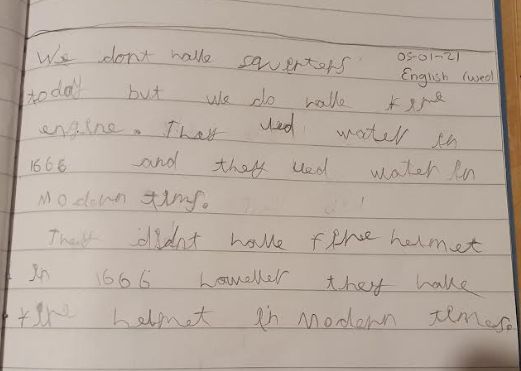 We dont halle squerters 05-01-21
English (wed
today but we do halle fire
engine. They ued water in
1666 and they ued water in
Modern tims.
They didnt halle fire helmet
In 1666 howeller they halle
fire helmet in Modern times.